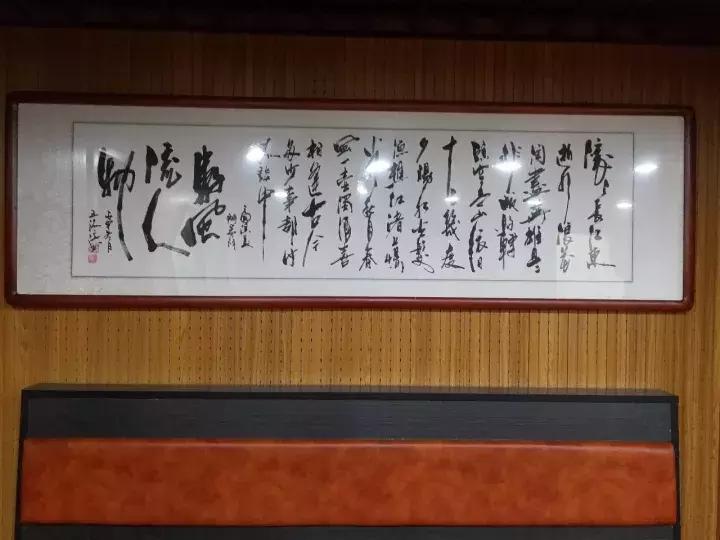 滚滚长江东
逝水浪花
淘尽英雄是
非成败转
头空青山依旧
在几度
夕阳红白发
渔樵江渚上惯
看秋月春
风一壶浊酒喜
相逢古今
多少事都付
笑谈中
数风
流人
物